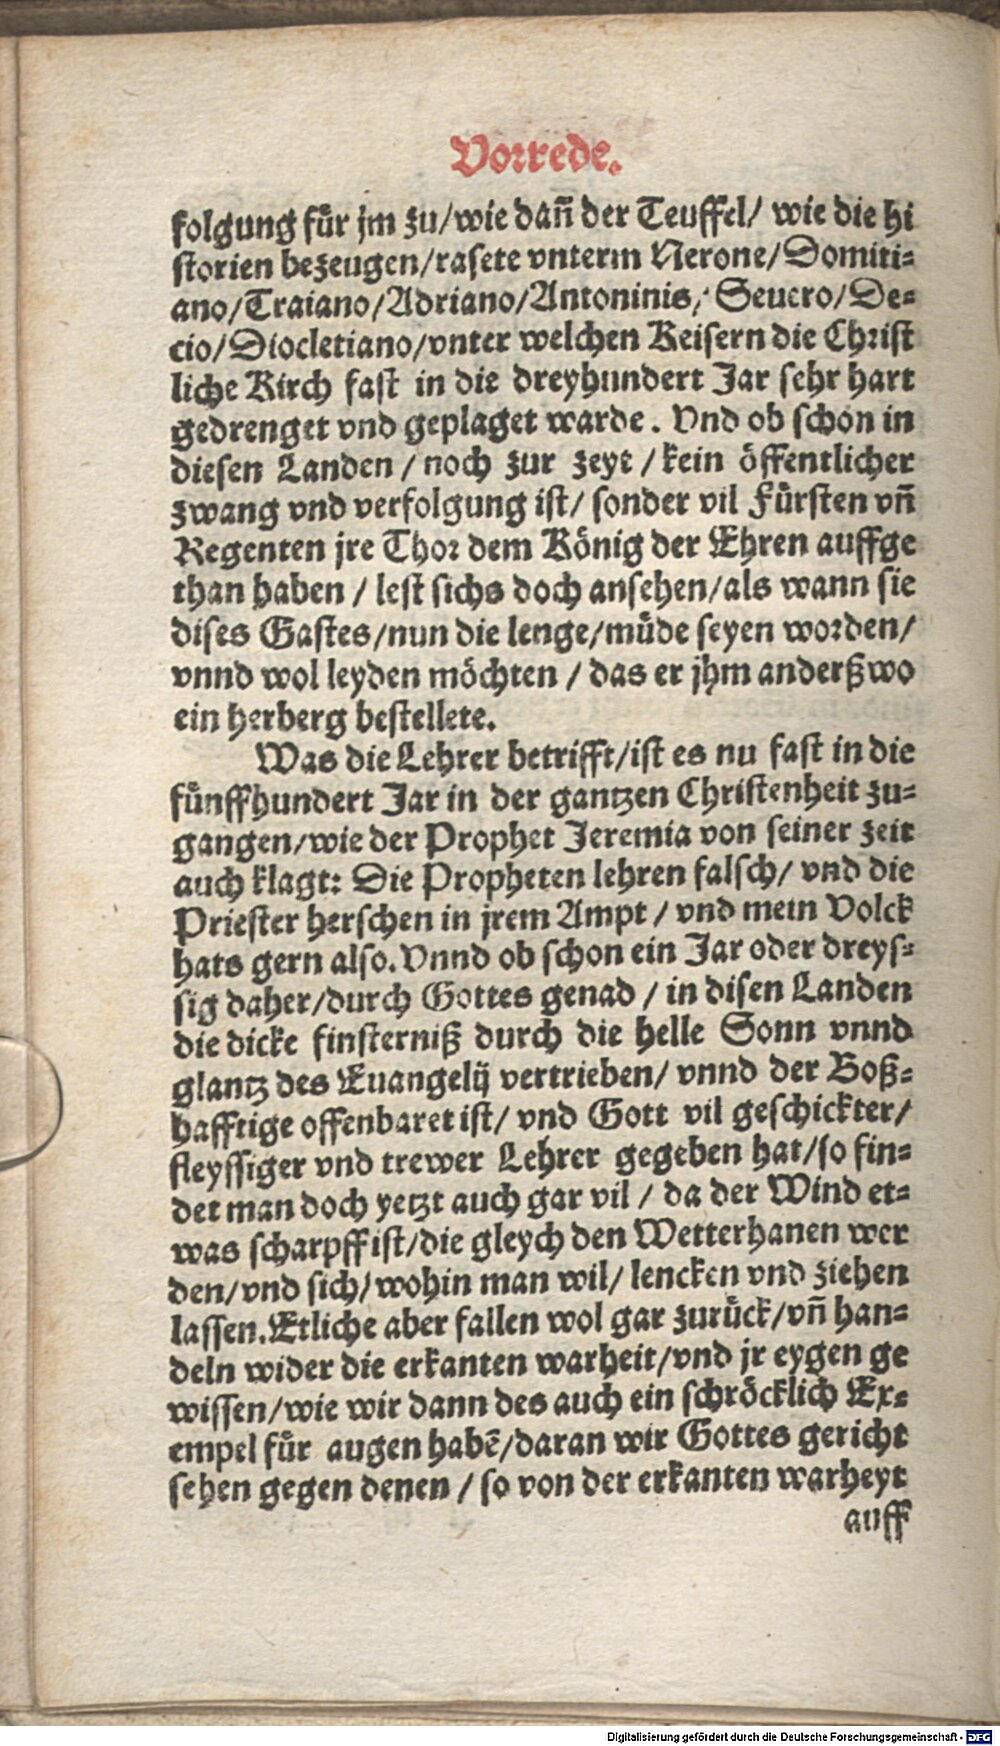 Vorrede.
folgung für jm zu/wie dañ der Teuffel/ wie die hi
storien bezeugen/rasete vnterm Nerone/Domiti=
ano/Traiano/Adriano/Antoninis/ Seuero/De=
cio/Diocletiano/vnter welchen Keisern die Christ
liche Kirch fast in die dreyhundert Jar sehr hart
gedrenget vnd geplaget warde. Vnd ob schon in
diesen Landen / noch zur zeyt / kein öffentlicher
zwang vnd verfolgung ist/ sonder vil Fürsten vñ
Regenten jre Thor dem König der Ehren auffge
than haben / lest sichs doch ansehen/als wann sie
dises Gastes/nun die lenge/müde seyen worden/
vnnd wol leyden möchten / das er jhm anderßwo
ein herberg bestellete.
Was die Lehrer betrifft/ist es nu fast in die
fünffhundert Jar in der gantzen Christenheit zu=
gangen/wie der Prophet Jeremia von seiner zeit
auch klagt: Die Propheten lehren falsch/ vnd die
Priester herschen in jrem Ampt / vnd mein Volck
hats gern also. Vnnd ob schon ein Jar oder dreys=
sig daher/durch Gottes genad / in disen Landen
die dicke finsterniß durch die helle Sonn vnnd
glantz des Euangelij vertrieben/ vnnd der Boß=
hafftige offenbaret ist/ vnd Gott vil geschickter/
fleyssiger vnd trewer Lehrer gegeben hat/so fin=
det man doch yetzt auch gar vil / da der Wind et=
was scharpff ist/die gleych den Wetterhanen wer
den/vnd sich/wohin man wil/ lencken vnd ziehen
lassen. Etliche aber fallen wol gar zurück/vñ han=
deln wider die erkanten warheit/vnd jr eygen ge
wissen/wie wir dann des auch ein schröcklich Ex=
empel für augen habẽ/daran wir Gottes gericht
sehen gegen denen / so von der erkanten warheyt
auff
Digitalisierung gefördert durch die Deutsche Forschungsgemeinschaft - DFG